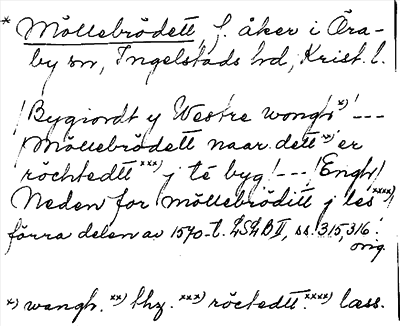 * Möllebrödett, f. åker i Öra-
by sn, Ingelstads hd, Krist. l.
/Bygiordt y Westre wongh x) ---
Möllebrödett naar dett xx) er
röchtedtt xxx) j té byg! --- /Engh/
Neden for möllebröditt j les xxxx)/
förra delen av 1570-t. LSLB II, ss. 315, 316.
orig.
x) wangh. xx) thz. xxx) röctedtt. xxxx) læss.